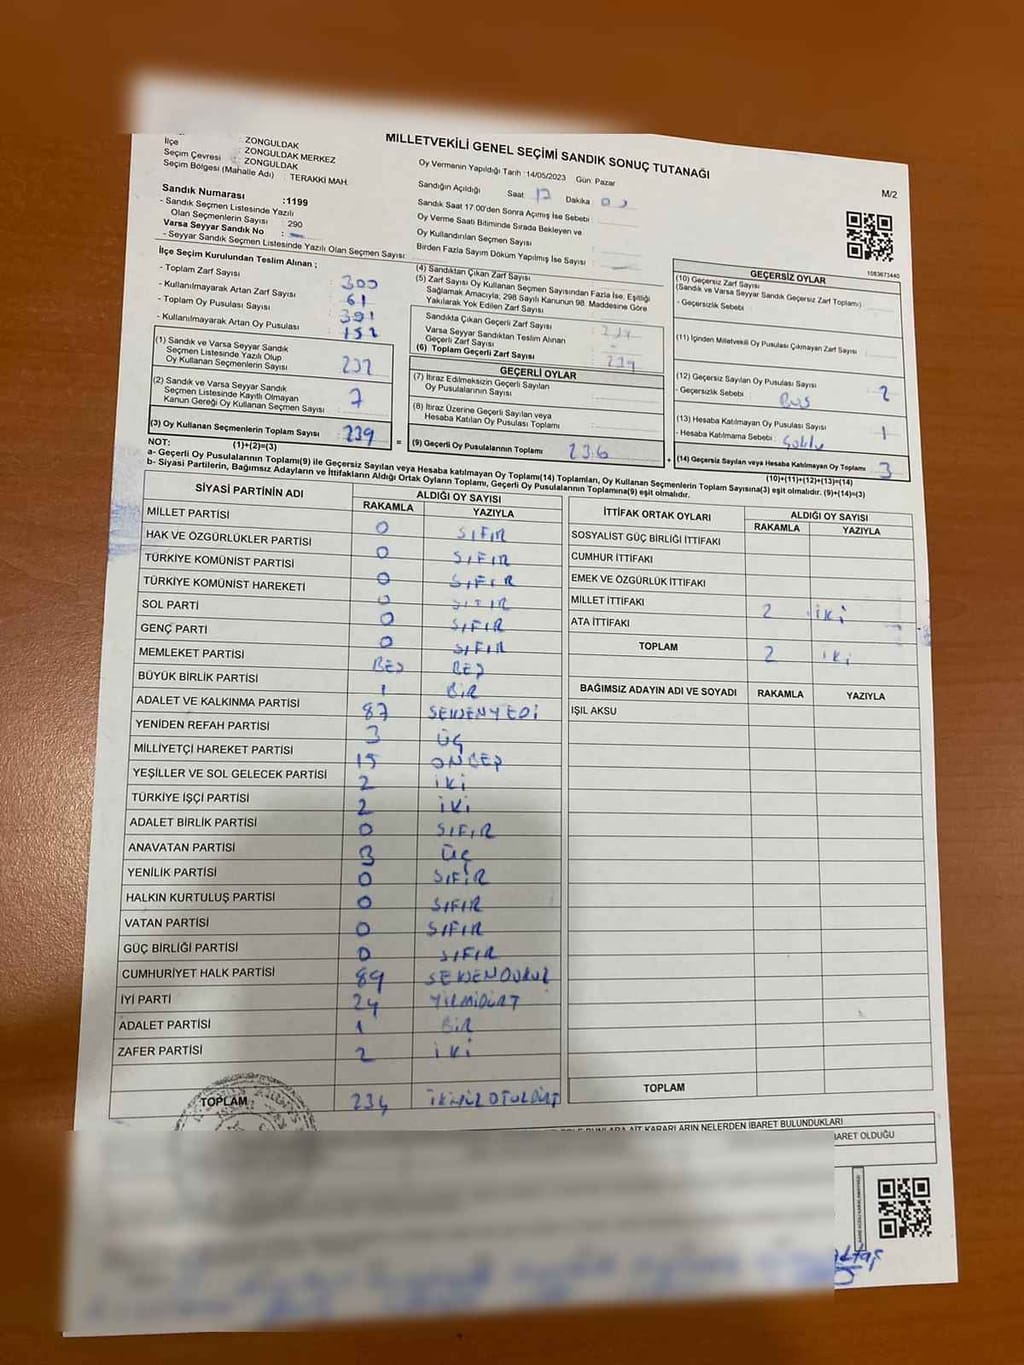 MİLLETVEKİLİ GENEL SEÇİMİ SANDIK SONUÇ TUTANAĞI
M/2
ZONGULDAK
İlçe : ZONGULDAK MERKEZ
Seçim Çevresi : ZONGULDAK
Seçim Bölgesi (Mahalle Adı) : TERAKKİ MAH.
Sandık Numarası :1199
- Sandık Seçmen Listesinde Yazılı
Olan Seçmenlerin Sayısı : 290
Varsa Seyyar Sandık No :
- Seyyar Sandık Listesinde Yazılı Olan Seçmen Sayısı:
Oy Vermenin Yapıldığı Tarih :14/05/2023 Gün: Pazar
Sandığın Açıldığı Saat 17 Dakika
Sandık Saat 17 00'den Sonra Açılmış İse Sebebi :
Oy Verme Saati Bitiminde Sırada Bekleyen ve
Oy Kullandırılan Seçmen Sayısı :
Birden Fazla Sayım Döküm Yapılmış İse Sayısı :
1083673440
İlçe Seçim Kurulundan Teslim Alınan ;
- Toplam Zarf Sayısı : 300
- Kullanılmayarak Artan Zarf Sayısı : 61
- Toplam Oy Pusulası Sayısı : 391
- Kullanılmayarak Artan Oy Pusulası : 152
(1) Sandık ve Varsa Seyyar Sandık
Seçmen Listesinde Yazılı Olup
Oy Kullanan Seçmenlerin Sayısı : 232
(2) Sandık ve Varsa Seyyar Sandık
Seçmen Listesinde Kayıtlı Olmayan
Kanun Gereği Oy Kullanan Seçmen Sayısı : 7
(3) Oy Kullanan Seçmenlerin Toplam Sayısı : 239
(1)+(2)=(3)
(4) Sandıktan Çıkan Zarf Sayısı
(5) Zarf Sayısı Oy Kullanan Seçmen Sayısından Fazla İse, Eşitliği
Sağlamak Amacıyla; 298 Sayılı Kanunun 98. Maddesine Göre
Yakılarak Yok Edilen Zarf Sayısı :
Sandıkta Çıkan Geçerli Zarf Sayısı :
Varsa Seyyar Sandıktan Teslim Alınan
Geçerli Zarf Sayısı :
(6) Toplam Geçerli Zarf Sayısı : 239
GEÇERLİ OYLAR
(7) İtiraz Edilmeksizin Geçerli Sayılan
Oy Pusulalarının Sayısı :
(8) İtiraz Üzerine Geçerli Sayılan veya
Hesaba Katılan Oy Pusulası Toplamı :
= (9) Geçerli Oy Pusulalarının Toplamı : 236
GEÇERSİZ OYLAR
(10) Geçersiz Zarf Sayısı
(Sandık ve Varsa Seyyar Sandık Geçersiz Zarf Toplamı) :
- Geçersizlik Sebebi :
(11) İçinden Milletvekili Oy Pusulası Çıkmayan Zarf Sayısı :
(12) Geçersiz Sayılan Oy Pusulası Sayısı : 2
- Geçersizlik Sebebi :
(13) Hesaba Katılmayan Oy Pusulası Sayısı : 1
- Hesaba Katılmama Sebebi :
+ (14) Geçersiz Sayılan veya Hesaba Katılmayan Oy Toplamı : 3
(10)+(11)+(12)+(13)=(14)
NOT:
a- Geçerli Oy Pusulalarının Toplamı(9) ile Geçersiz Sayılan veya Hesaba katılmayan Oy Toplamı(14) Toplamları, Oy Kullanan Seçmenlerin Toplam Sayısına(3) eşit olmalıdır. (9)+(14)=(3)
b- Siyasi Partilerin, Bağımsız Adayların ve İttifakların Aldığı Ortak Oyların Toplamı, Geçerli Oy Pusulalarının Toplamına(9) eşit olmalıdır.
SİYASİ PARTİNİN ADI ALDIĞI OY SAYISI
RAKAMLA YAZIYLA
MİLLET PARTİSİ 0 SIFIR
HAK VE ÖZGÜRLÜKLER PARTİSİ 0 SIFIR
TÜRKİYE KOMÜNİST PARTİSİ 0 SIFIR
TÜRKİYE KOMÜNİST HAREKETİ 0 SIFIR
SOL PARTİ 0 SIFIR
GENÇ PARTİ 0 SIFIR
MEMLEKET PARTİSİ BEŞ BEŞ
BÜYÜK BİRLİK PARTİSİ 1 BİR
ADALET VE KALKINMA PARTİSİ 87 SEKSENYEDİ
YENİDEN REFAH PARTİSİ 3 ÜÇ
MİLLİYETÇİ HAREKET PARTİSİ 15 ONBEŞ
YEŞİLLER VE SOL GELECEK PARTİSİ 2 İKİ
TÜRKİYE İŞÇİ PARTİSİ 2 İKİ
ADALET BİRLİK PARTİSİ 0 SIFIR
ANAVATAN PARTİSİ 3 ÜÇ
YENİLİK PARTİSİ 0 SIFIR
HALKIN KURTULUŞ PARTİSİ 0 SIFIR
VATAN PARTİSİ 0 SIFIR
GÜÇ BİRLİĞİ PARTİSİ 0 SIFIR
CUMHURİYET HALK PARTİSİ 89 SEKSENDOKUZ
İYİ PARTİ 24 YİRMİDÖRT
ADALET PARTİSİ 1 BİR
ZAFER PARTİSİ 2 İKİ
TOPLAM 234 İKİYÜZOTUZDÖRT
İTTİFAK ORTAK OYLARI ALDIĞI OY SAYISI
RAKAMLA YAZIYLA
SOSYALİST GÜÇ BİRLİĞİ İTTİFAKI
CUMHUR İTTİFAKI
EMEK VE ÖZGÜRLÜK İTTİFAKI
MİLLET İTTİFAKI 2 İKİ
ATA İTTİFAKI
TOPLAM 2 İKİ
BAĞIMSIZ ADAYIN ADI VE SOYADI RAKAMLA YAZIYLA
IŞIL AKSU
TOPLAM
KARARLARIN NELERDEN İBARET BULUNDUKLARI
İBARET OLDUĞU